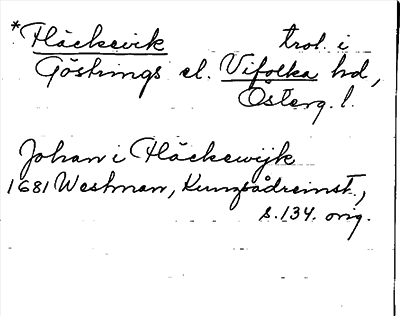 *Fläckevik trol. i
Göstrings el. Vifolka hd,
Österg. l.
Johan i Fläckewijk
1681 Westman, Kungsådreinst.,
s. 134. orig.